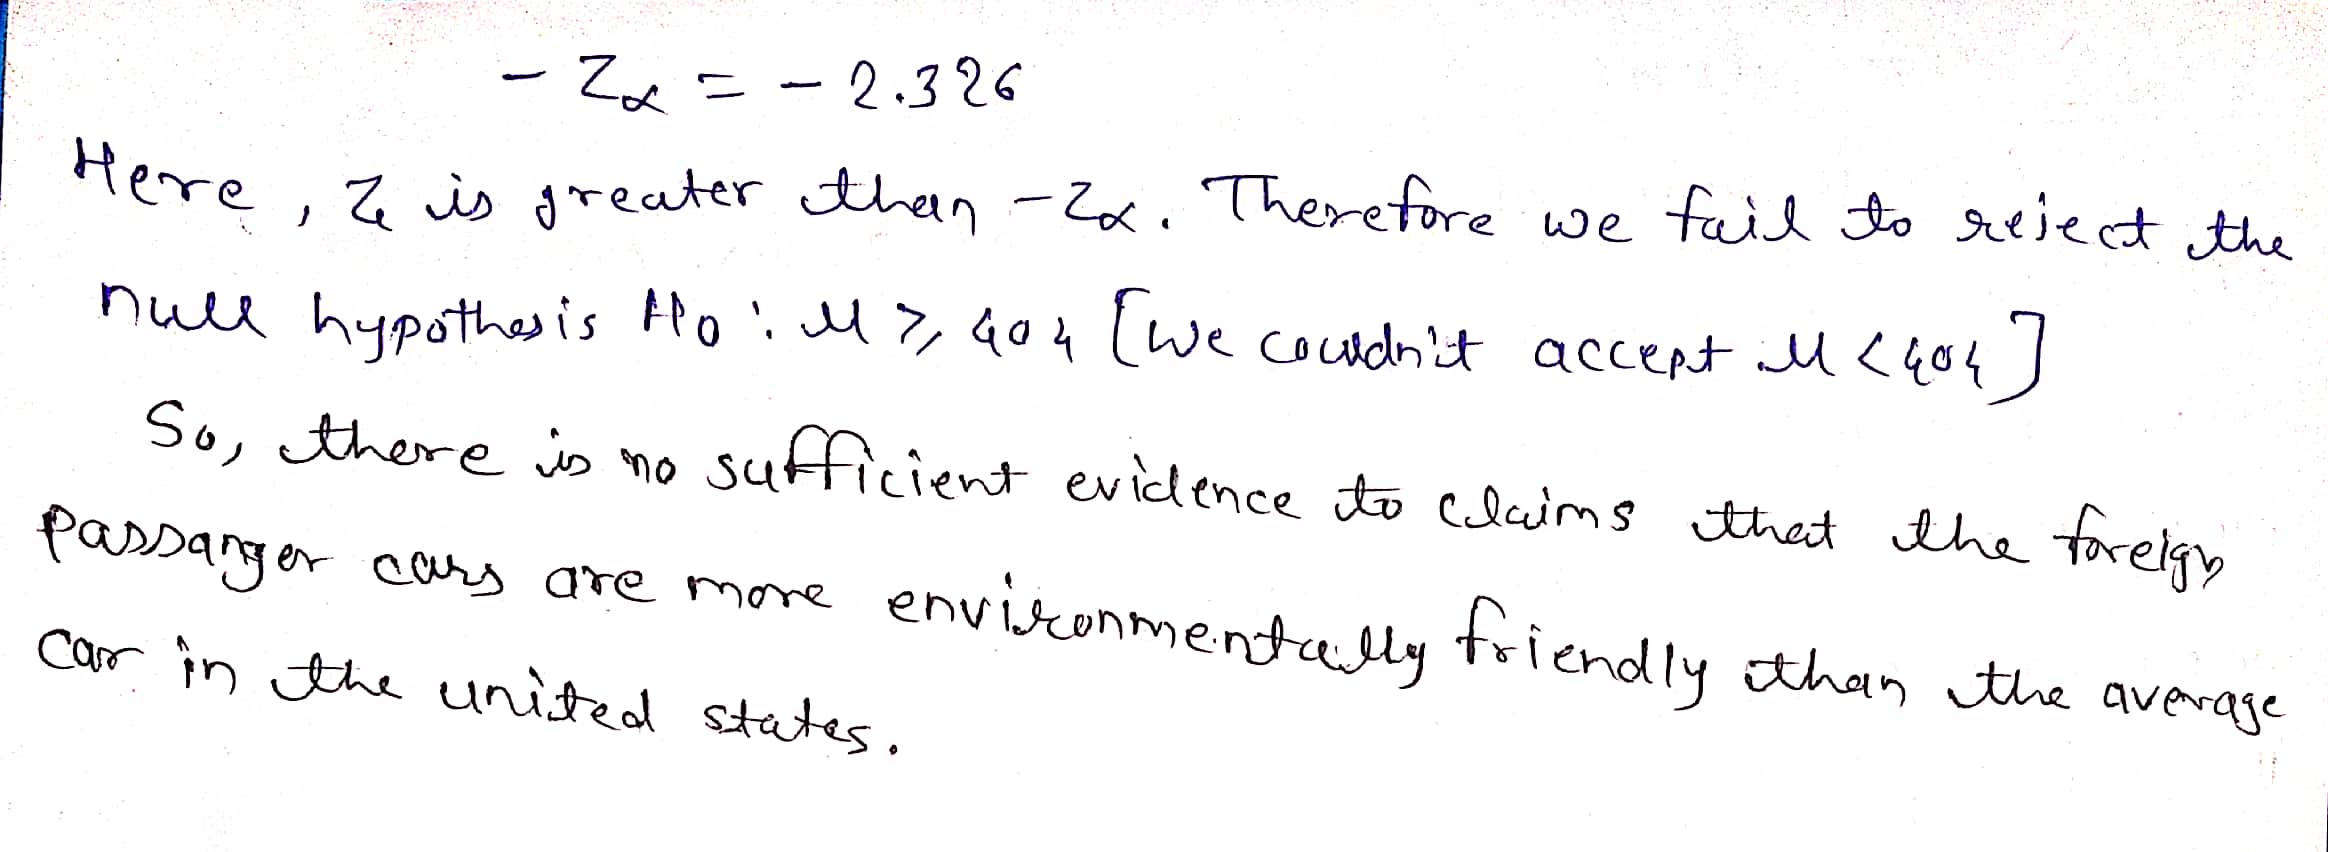 - Zα = - 2.326
Here, Z is greater than -Zα. Therefore we fail to reject the
null hypothesis H0 : M ⩾ 404 [We couldn't accept M < 404]
So, there is no sufficient evidence to claims that the foreign
passanger cars are more environmentally friendly than the average
car in the united states.